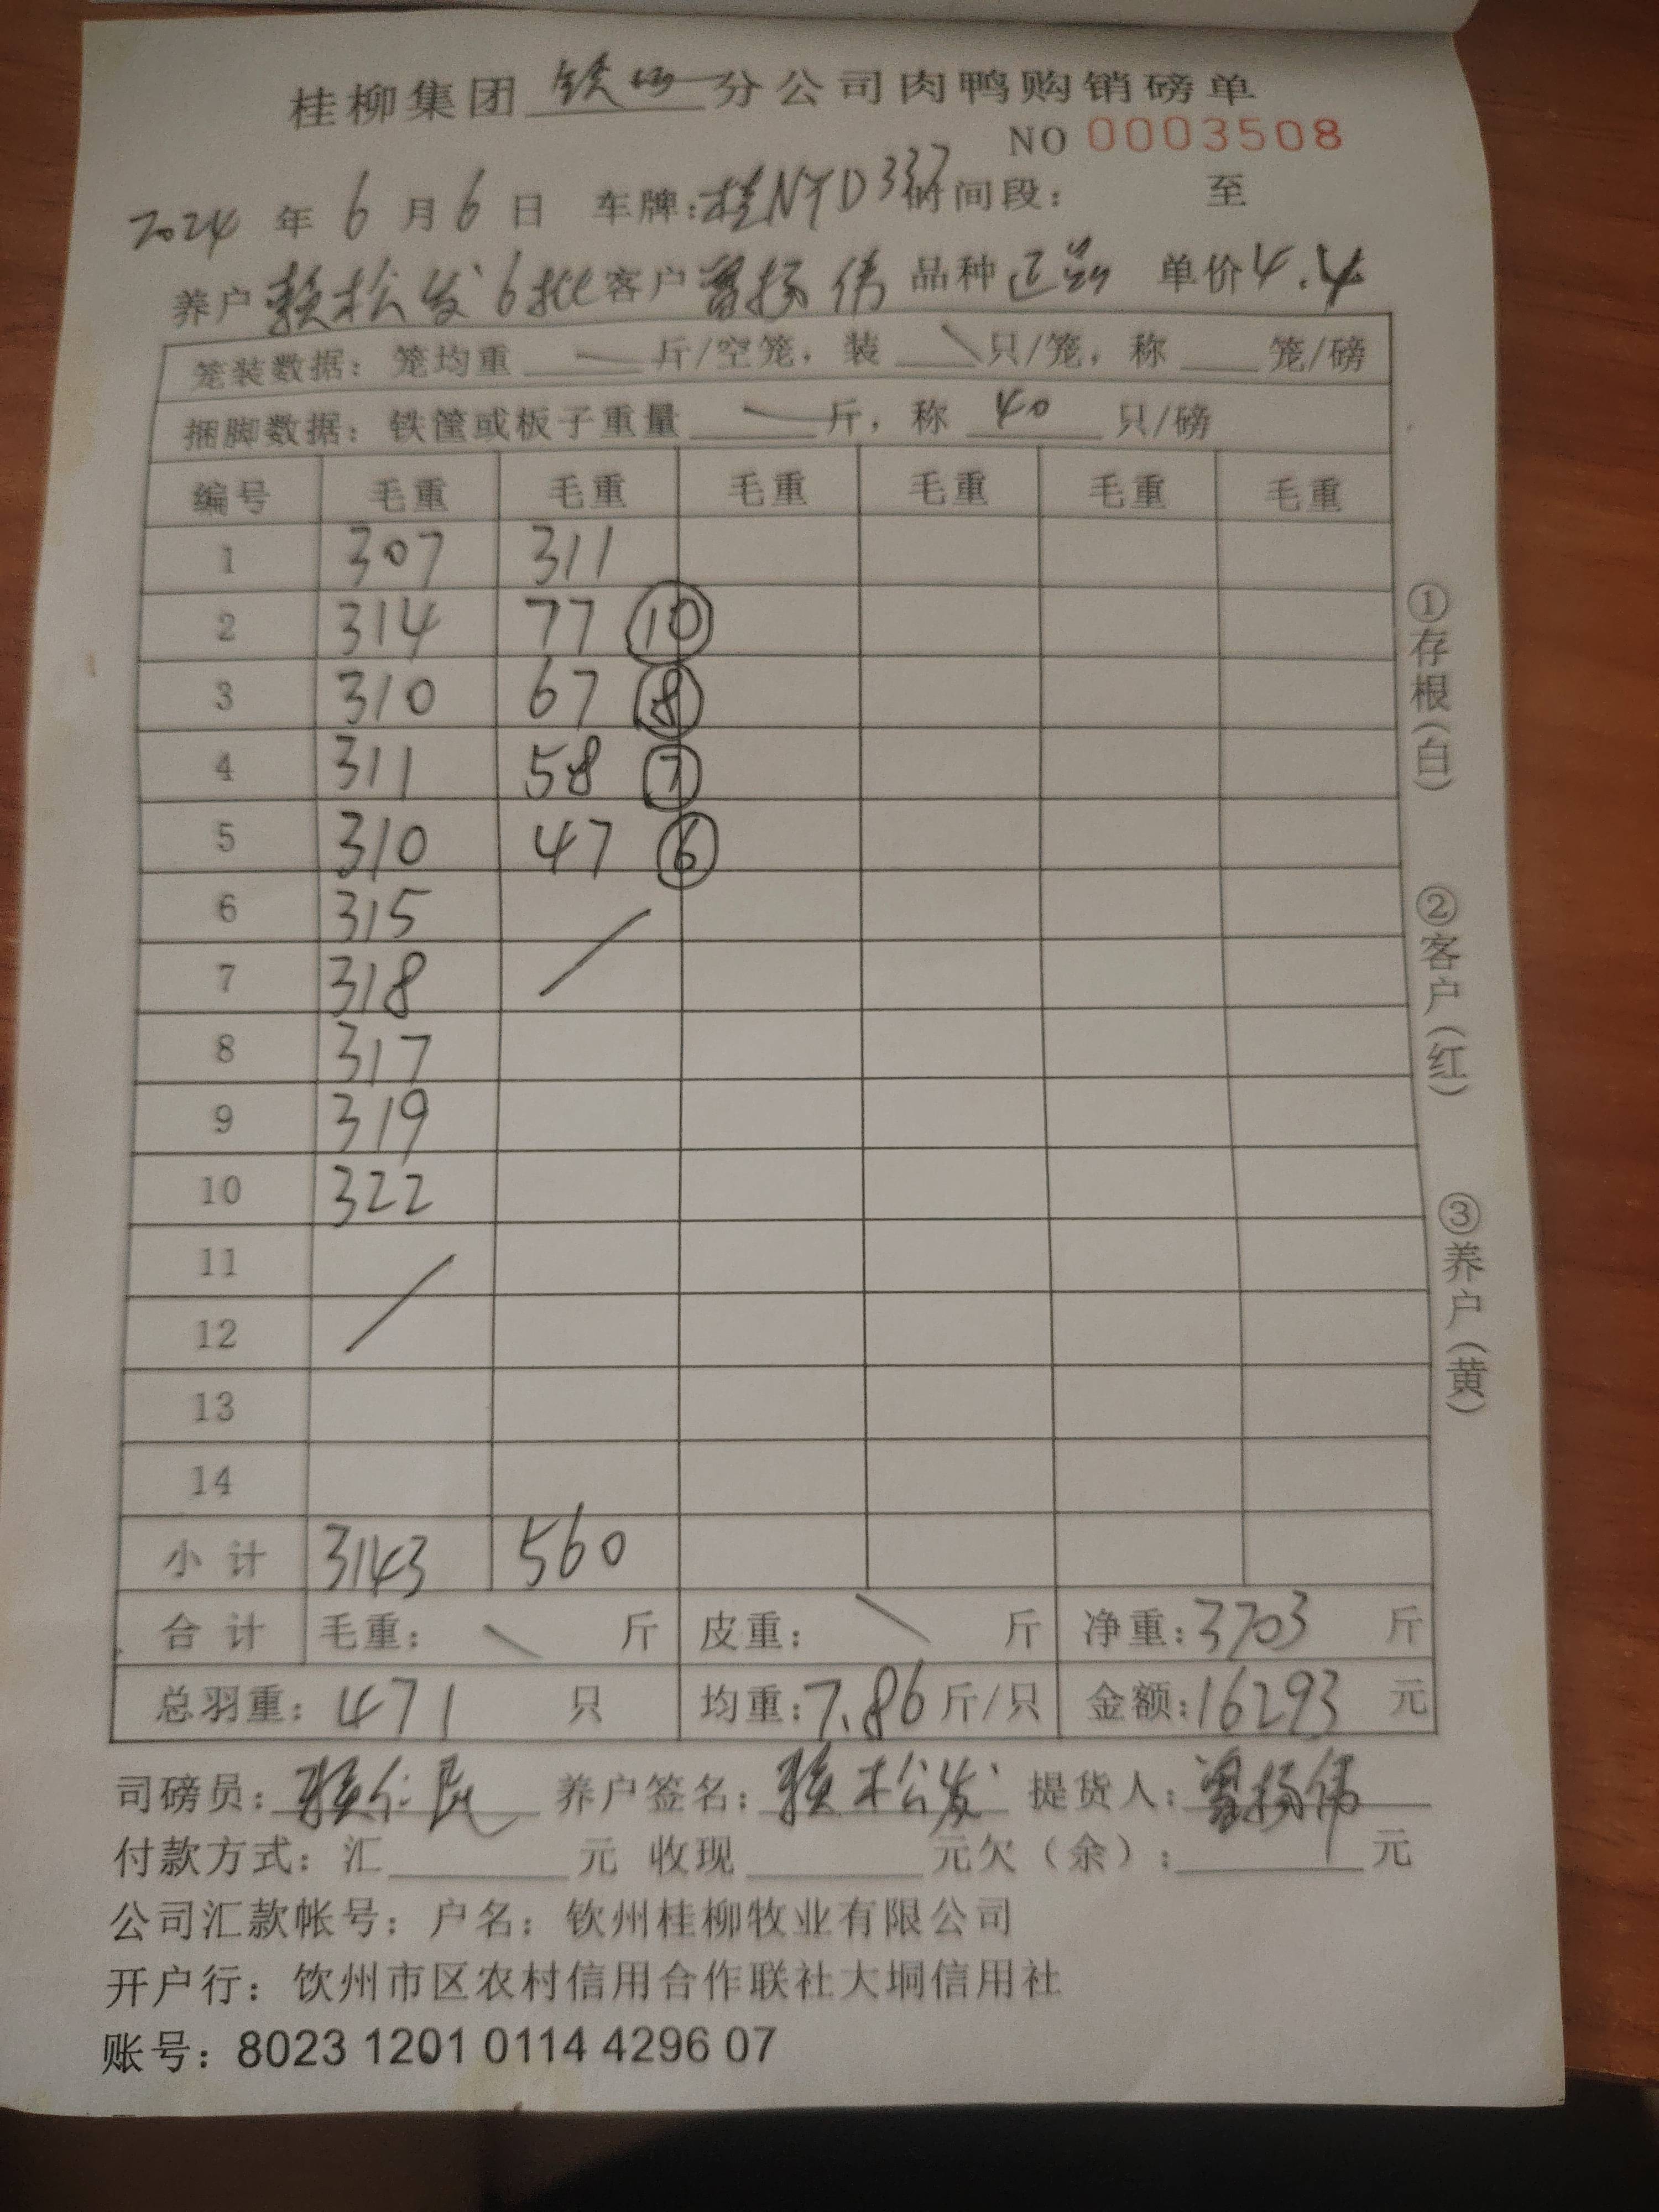 桂柳集团铁山分公司肉鸭购销磅单
NO 0003508
2024年6月6日 车牌:桂NYD337时间段: 至
养户赖松发6批客户曾扬伟 品种正品 单价4.4
笼装数据:笼均重 斤/空笼,装 只/笼,称 笼/磅
捆脚数据:铁筐或板子重量 斤,称 40 只/磅
编号 毛重 毛重 毛重 毛重 毛重 毛重
1 307 311
2 314 77 ⑩
3 310 67 ⑧
4 311 58 ⑦
5 310 47 ⑥
6 315
7 318
8 317
9 319
10 322
11
12
13
14
小计 3143 560
合计 毛重: 斤 皮重: 斤 净重:3703 斤
总羽重:471 只 均重:7.86斤/只 金额:16293 元
①存根(白)
②客户(红)
③养户(黄)
司磅员:赖仁民 养户签名:赖松发 提货人:曾扬伟
付款方式:汇 元 收现 元欠(余): 元
公司汇款帐号:户名:钦州桂柳牧业有限公司
开户行:钦州市区农村信用合作联社大垌信用社
账号:8023 1201 0114 4296 07